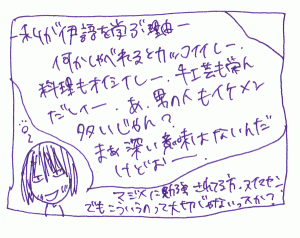 −私が伊語を学ぶ理由−
何かしゃべれるとカッコイイしー.
料理もオイシイしー. 手工芸も栄ん
だしィー. あ、男の人もイケメン
多いじゃん?
まあ深い意味はないんだ
けどおー.
マジメに勉強されてる方、スイマセン
でもこういうのって大切じゃないッスか?